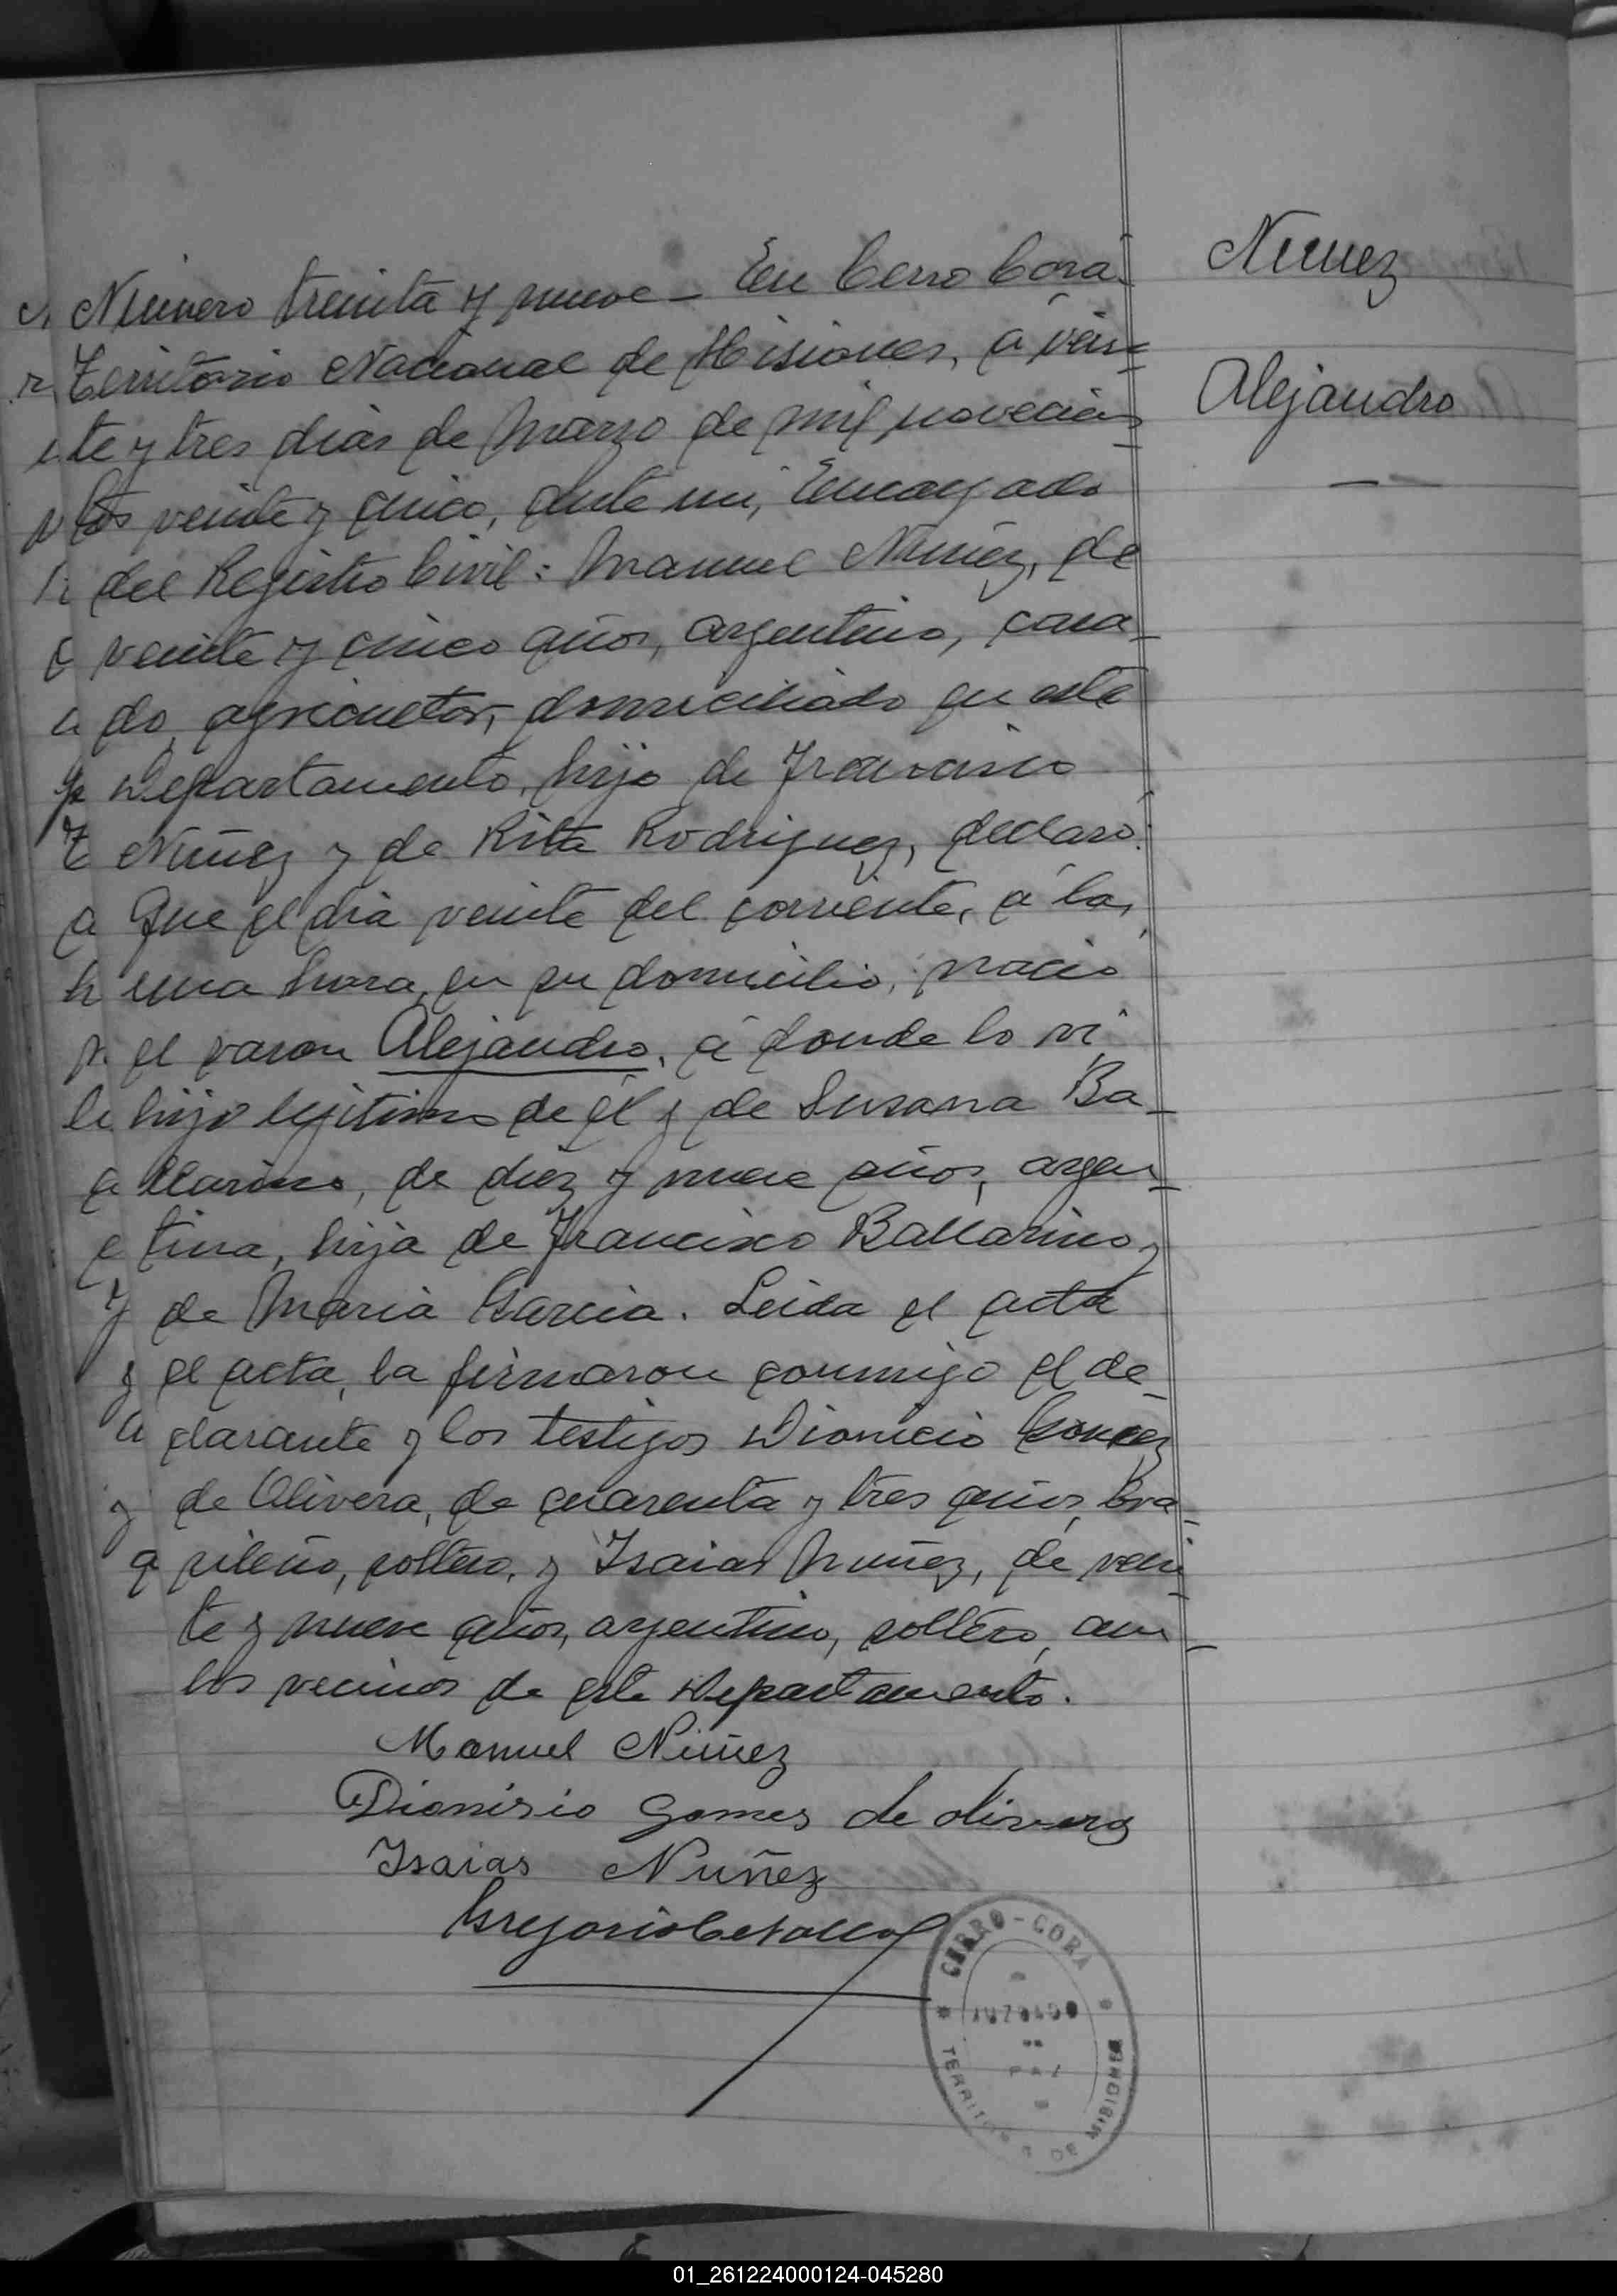 Nuñez
Alejandro
Número treinta y nueve - En Cerro Corá
Territorio Nacional de Misiones, a vein-
te y tres dias de Marzo de mil novecien
tos veinte y cinco, ante mi, Encargado
del Registro Civil: Manuel Nuñez, de
veinte y cinco años, argentino, casa-
do, agricultor, domiciliado en este
Departamento, hijo de Francisco
Nuñez y de Rita Rodriguez, declaró:
Que el dia veinte del corriente, á la
una hora, en su domicilio, nació
el varon Alejandro, á donde lo vi
hijo lejitimo de él y de Susana Ba-
llarino, de diez y nueve años, argen-
tina, hija de Francisco Ballarino
y de Maria Garcia. Leida el acta
el acta, la firmaron conmigo el de-
clarante y los testigos Dionicio Gomez
de Olivera, de cuarenta y tres años, bra-
sileño, soltero, y Isaias Nuñez, de vein-
te y nueve años, argentino, soltero, am-
bos vecinos de este Departamento.
Manuel Nuñez
Dionisio Gomes de olivera
Isaias Nuñez
Gregorio
CERRO-CORA
JUZGADO
DE
PAZ
TERRITORIO DE MISIONES
01_261224000124-045280